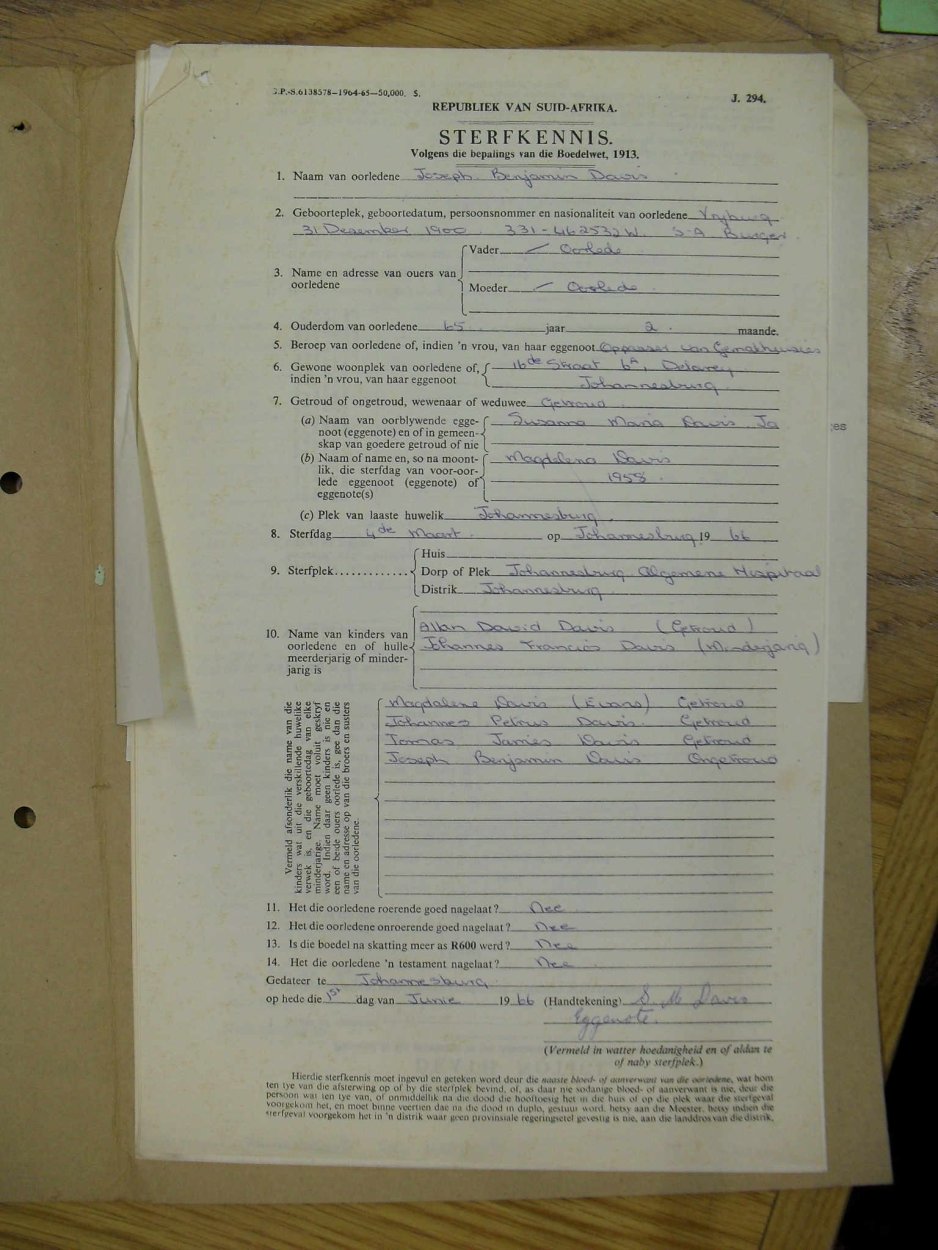 G.P.-S.6138578—1964-65—50,000. S.
J. 294.
REPUBLIEK VAN SUID-AFRIKA.
STERFKENNIS.
Volgens die bepalings van die Boedelwet, 1913.
1. Naam van oorledene Joseph Benjamin Davis
2. Geboorteplek, geboortedatum, persoonsnommer en nasionaliteit van oorledene Vryburg
31 Desember 1900 331-462532W. S-A Burger
3. Name en adresse van ouers van oorledene
Vader Oorlede
Moeder Oorlede
4. Ouderdom van oorledene 65 jaar 2 maande.
5. Beroep van oorledene of, indien 'n vrou, van haar eggenoot Oppasser van
6. Gewone woonplek van oorledene of, indien 'n vrou, van haar eggenoot
16de Straat 6A, Delarey
Johannesburg
7. Getroud of ongetroud, wewenaar of weduwee Getroud
(a) Naam van oorblywende eggenoot (eggenote) en of in gemeenskap van goedere getroud of nie
Susanna Maria Davis Ja
(b) Naam of name en, so na moontlik, die sterfdag van voor-oorlede eggenoot (eggenote) of eggenote(s)
Magdalena Davis
1958
(c) Plek van laaste huwelik Johannesburg
8. Sterfdag 4de Maart op Johannesburg 19 66
9. Sterfplek
Huis
Dorp of Plek Johannesburg Algemene Hospitaal
Distrik Johannesburg
10. Name van kinders van oorledene en of hulle meerderjarig of minderjarig is
Allan David Davis (Getroud)
Johannes Francios Davis (Minderjarig)
Vermeld afsonderlik die name van die
kinders wat uit die verskillende huwelike
verwek is, en die geboortedag van elke
minderjarige. Name moet voluit geskryf
word. Indien daar geen kinders is nie en
een of beide ouers oorlede is, gee dan die
name en adresse op van die broers en susters
van die oorledene.
Magdalene Davis (Evans) Getroud
Johannes Petrus Davis Getroud
Tomas James Davis Getroud
Joseph Benjamin Davis Ongetroud
11. Het die oorledene roerende goed nagelaat? Nee
12. Het die oorledene onroerende goed nagelaat? Nee
13. Is die boedel na skatting meer as R600 werd? Nee
14. Het die oorledene 'n testament nagelaat? Nee
Gedateer te Johannesburg
op hede die 1st dag van Junie 19 66 (Handtekening) S. M Davis
Eggenote.
(Vermeld in watter hoedanigheid en of aldan te
of naby sterfplek.)
Hierdie sterfkennis moet ingevul en geteken word deur die naaste bloed- of aanverwant van die oorledene, wat hom
ten tye van die afsterwing op of by die sterfplek bevind, of, as daar nie sodanige bloed- of aanverwant is nie, deur die
persoon wat ten tye van, of onmiddellik na die dood die hooftoesig het in die huis of op die plek waar die sterfgeval
voorgekom het, en moet binne veertien dae na die dood in duplo, gestuur word, hetsy aan die Meester, hetsy indien die
sterfgeval voorgekom het in 'n distrik waar geen provinsiale regeringsetel gevestig is nie, aan die landdros van die distrik.